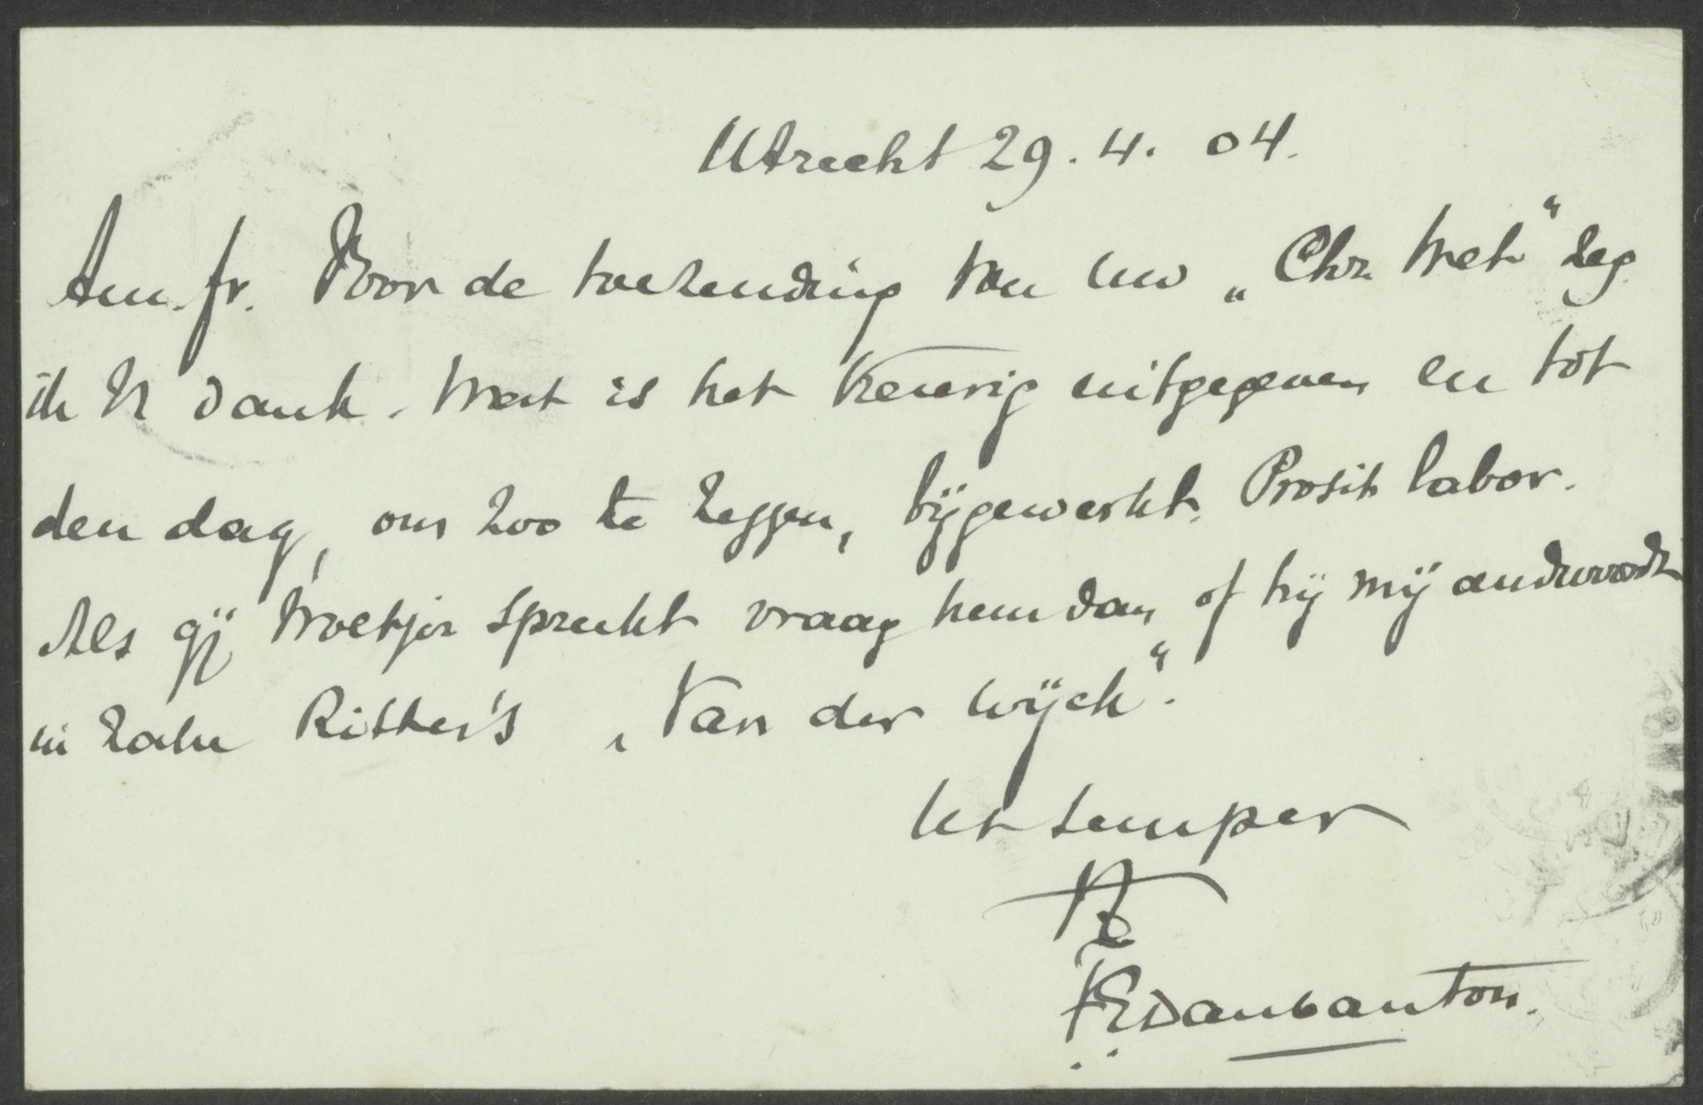 Utrecht 29.4.04.
Am. fr. Voor de toezending van uw „Chr. Wet“ zeg
ik U dank. Wat is het keurig uitgegeven en tot
den dag, om zoo te zeggen, bijgewerkt. Prosit labor.
Als gij Woltjer spreekt vraag hem dan of hij mij andwoordt
in zake Ritter's „Van der Wijck“.
Ut semper
FEDaubanton.